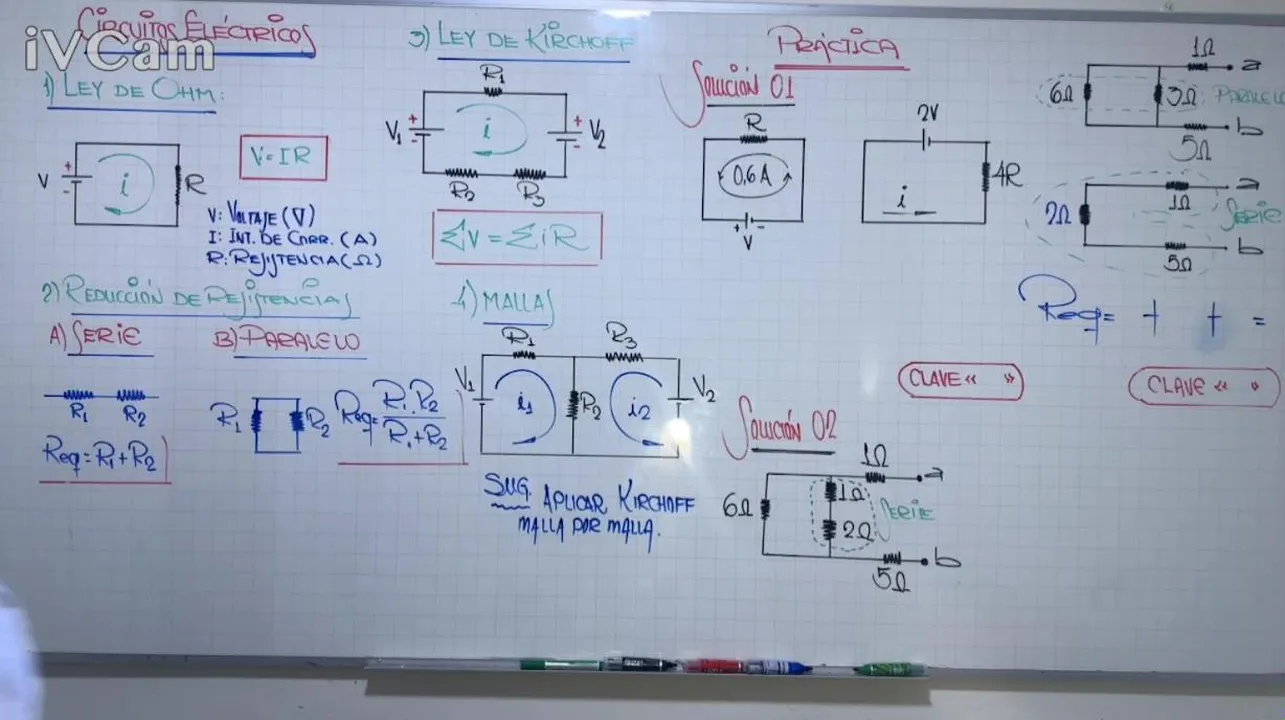 iVCam
CIRCUITOS ELÉCTRICOS
1) LEY DE OHM:
V
i
R
V=IR
V: VOLTAJE (V)
I: INT. DE CORR. (A)
R: RESISTENCIA (Ω)
2) REDUCCIÓN DE RESISTENCIAS
A) SERIE
R1 R2
Req = R1 + R2
B) PARALELO
R1 R2
Req = R1.R2 / R1+R2
3) LEY DE KIRCHOFF
R1
V1 i V2
R2 R3
ΣV = ΣiR
4) MALLAS
R1 R3
V1 i1 R2 i2 V2
SUG. APLICAR KIRCHOFF
MALLA POR MALLA.
PRÁCTICA
SOLUCIÓN 01
R
0,6A
+ -
V
2V
4R
i
CLAVE « »
SOLUCIÓN 02
1Ω a
6Ω 1Ω SERIE
2Ω
5Ω b
1Ω a
6Ω 3Ω PARALELO
5Ω b
2Ω 1Ω a
SERIE
5Ω b
Req = + + =
CLAVE « »